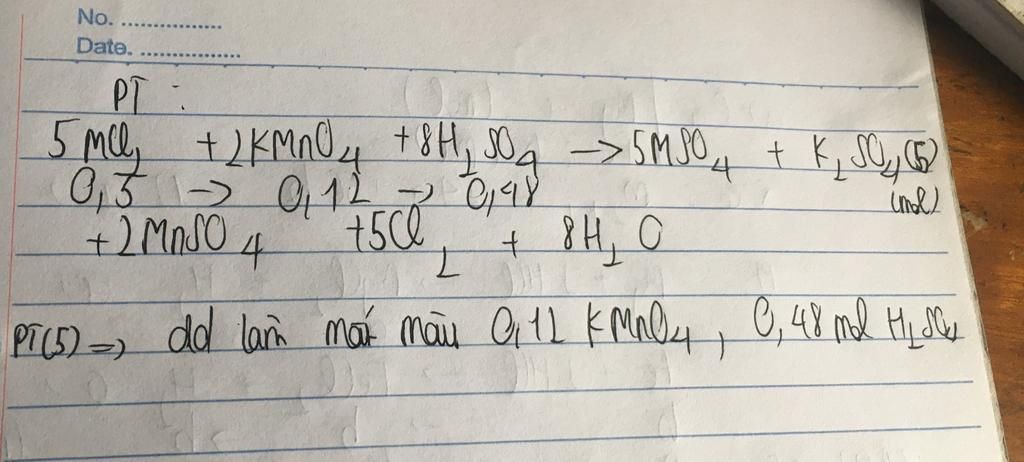 No. ................
Date. ................
PT :
5 MCl₂ + 2KMnO₄ + 8H₂SO₄ → 5MSO₄ + K₂SO₄ (5)
0,3 → 0,12 → 0,48 (mol)
+ 2MnSO₄ + 5Cl₂ + 8H₂O
PT(5) => dd làm mất màu 0,12 KMnO₄, 0,48 mol H₂SO₄